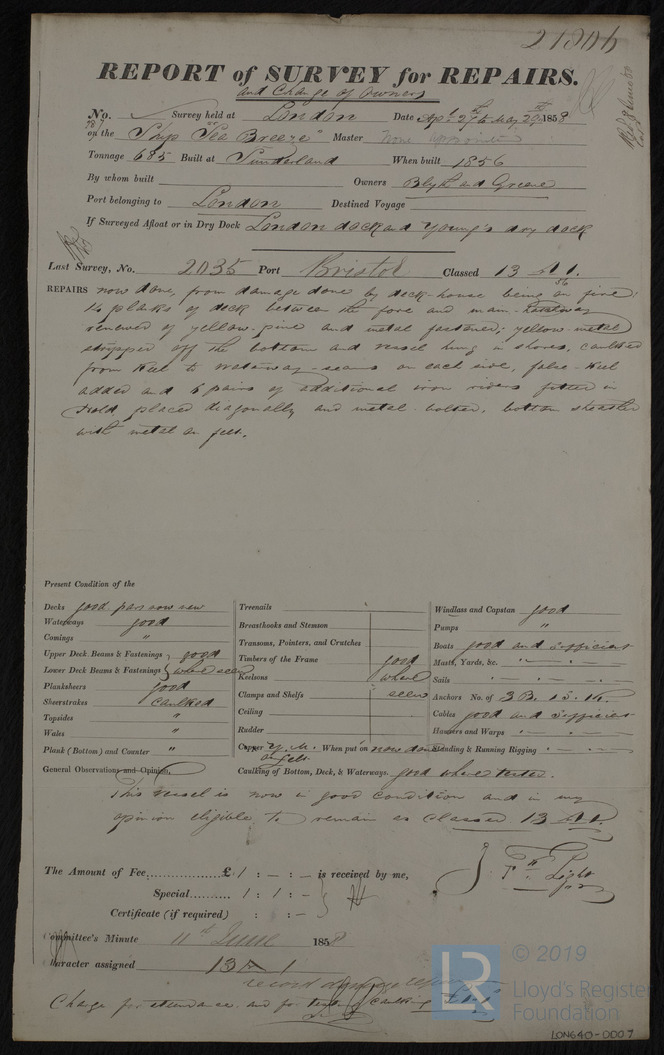 21806
REPORT of SURVEY for REPAIRS.
and Change of Owners
No. Survey held at London Date Apl. 27th to May 29th 1858
on the Ship "Sea Breeze" Master None appointed
Tonnage 685 Built at Sunderland When built 1856
By whom built Owners Blyth and Greene
Port belonging to London Destined Voyage
If Surveyed Afloat or in Dry Dock London dock and Young's dry dock
Last Survey, No. 2035 Port Bristol Classed 13 A 1.
56
REPAIRS now done, from damage done by deck-house being on fire:
14 planks of deck between the fore and main-hatchway
renewed of yellow-pine and metal fastened; yellow-metal
stripped off the bottom and vessel hung in shores, caulked
from Keel to waterway-seams on each side, false-Keel
added and 6 pairs of additional iron riders fitted in
Hold, placed diagonally and metal-bolted, bottom sheathed
with metal on felt.
Present Condition of the
Decks good part now new
Waterways good
Comings "
Upper Deck Beams & Fastenings good
Lower Deck Beams & Fastenings where seen
Planksheers good
Sheerstrakes caulked
Topsides "
Wales "
Plank (Bottom) and Counter "
Treenails
Breasthooks and Stemson
Transoms, Pointers, and Crutches
Timbers of the Frame good
Keelsons where
Clamps and Shelfs seen
Ceiling
Rudder
Copper Y. M. When put on now done
on felt
Windlass and Capstan good
Pumps "
Boats good and sufficient
Masts, Yards, &c. " " "
Sails " " "
Anchors No. of 3 B. 1 S. 1 K.
Cables good and sufficient
Hawsers and Warps " " "
Standing & Running Rigging " " "
General Observations and Opinion, Caulking of Bottom, Deck, & Waterways. good where tested.
This Vessel is now in good condition and in my
opinion eligible to remain as Classed 13 A 1.
The Amount of Fee £ 1 : - : - is received by me,
Special 1 : 1 : -
Certificate (if required) : : -
Light
Committee's Minute 11th June 1858
Character assigned 13 A 1
Charge for attendance and for testing Caulking
© 2019
LR
Lloyd's Register
Foundation
LON640-0007